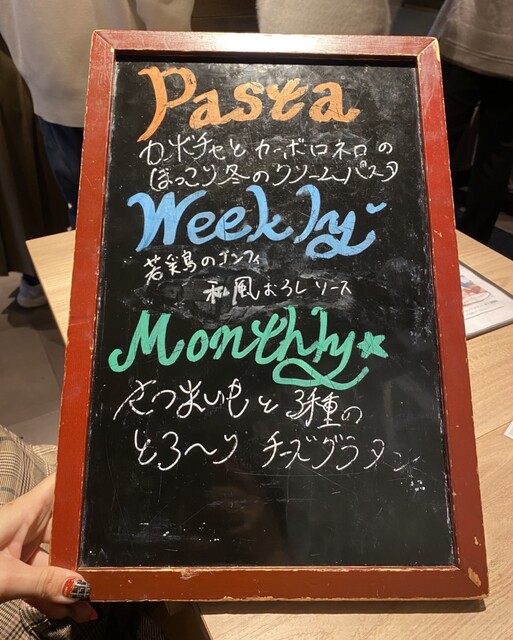 Pasta
カボチャとカーボロネロの
ほっこり冬のクリームパスタ
Weekly
若鶏のコンフィ
和風おろしソース
Monthly
さつまいもと3種の
とろ〜り チーズグラタン